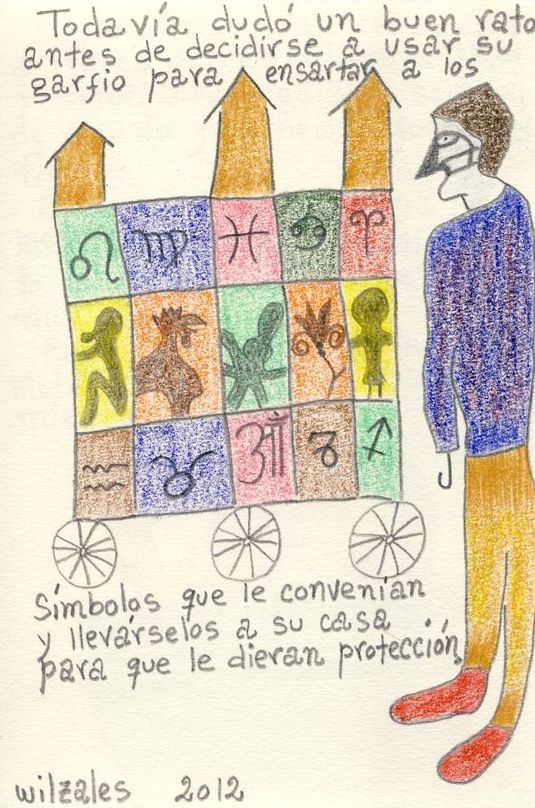 Todavía dudó un buen rato
antes de decidirse a usar su
garfio para ensartar a los
símbolos que le convenían
y llevárselos a su casa
para que le dieran protección.
wilzales 2012